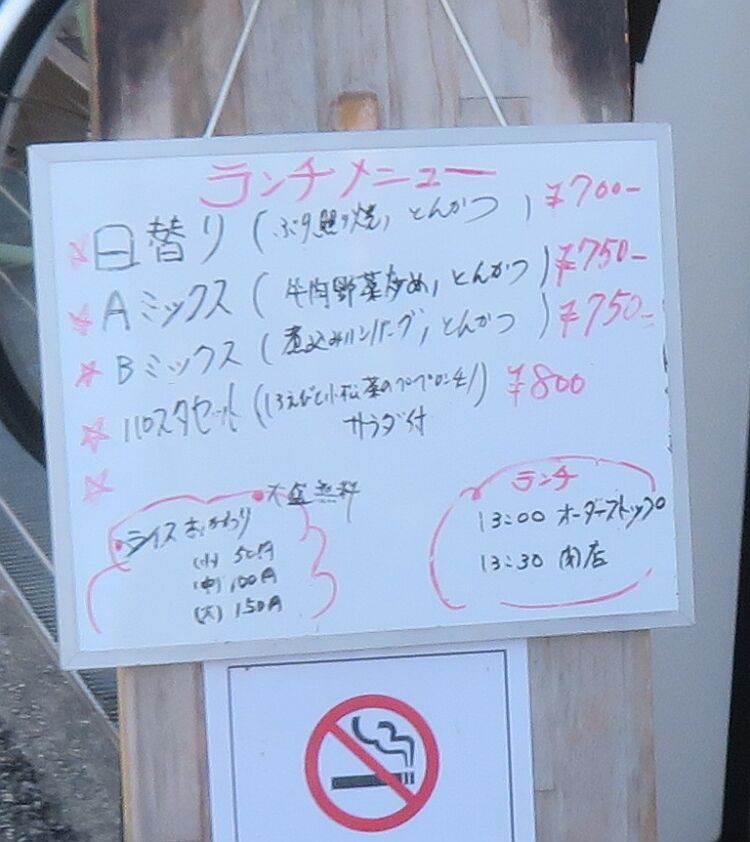 ランチメニュー
☆日替り(ぶり照り焼, とんかつ) ¥700-
☆Aミックス(牛肉野菜炒め, とんかつ) ¥750-
☆Bミックス(煮込みハンバーグ, とんかつ) ¥750-
☆パスタセット(小えびと小松菜のペペロンチーノ) ¥800
サラダ付
☆
・大盛無料
・ライスおかわり
(小) 50円
(中) 100円
(大) 150円
ランチ
13:00 オーダーストップ
13:30 閉店